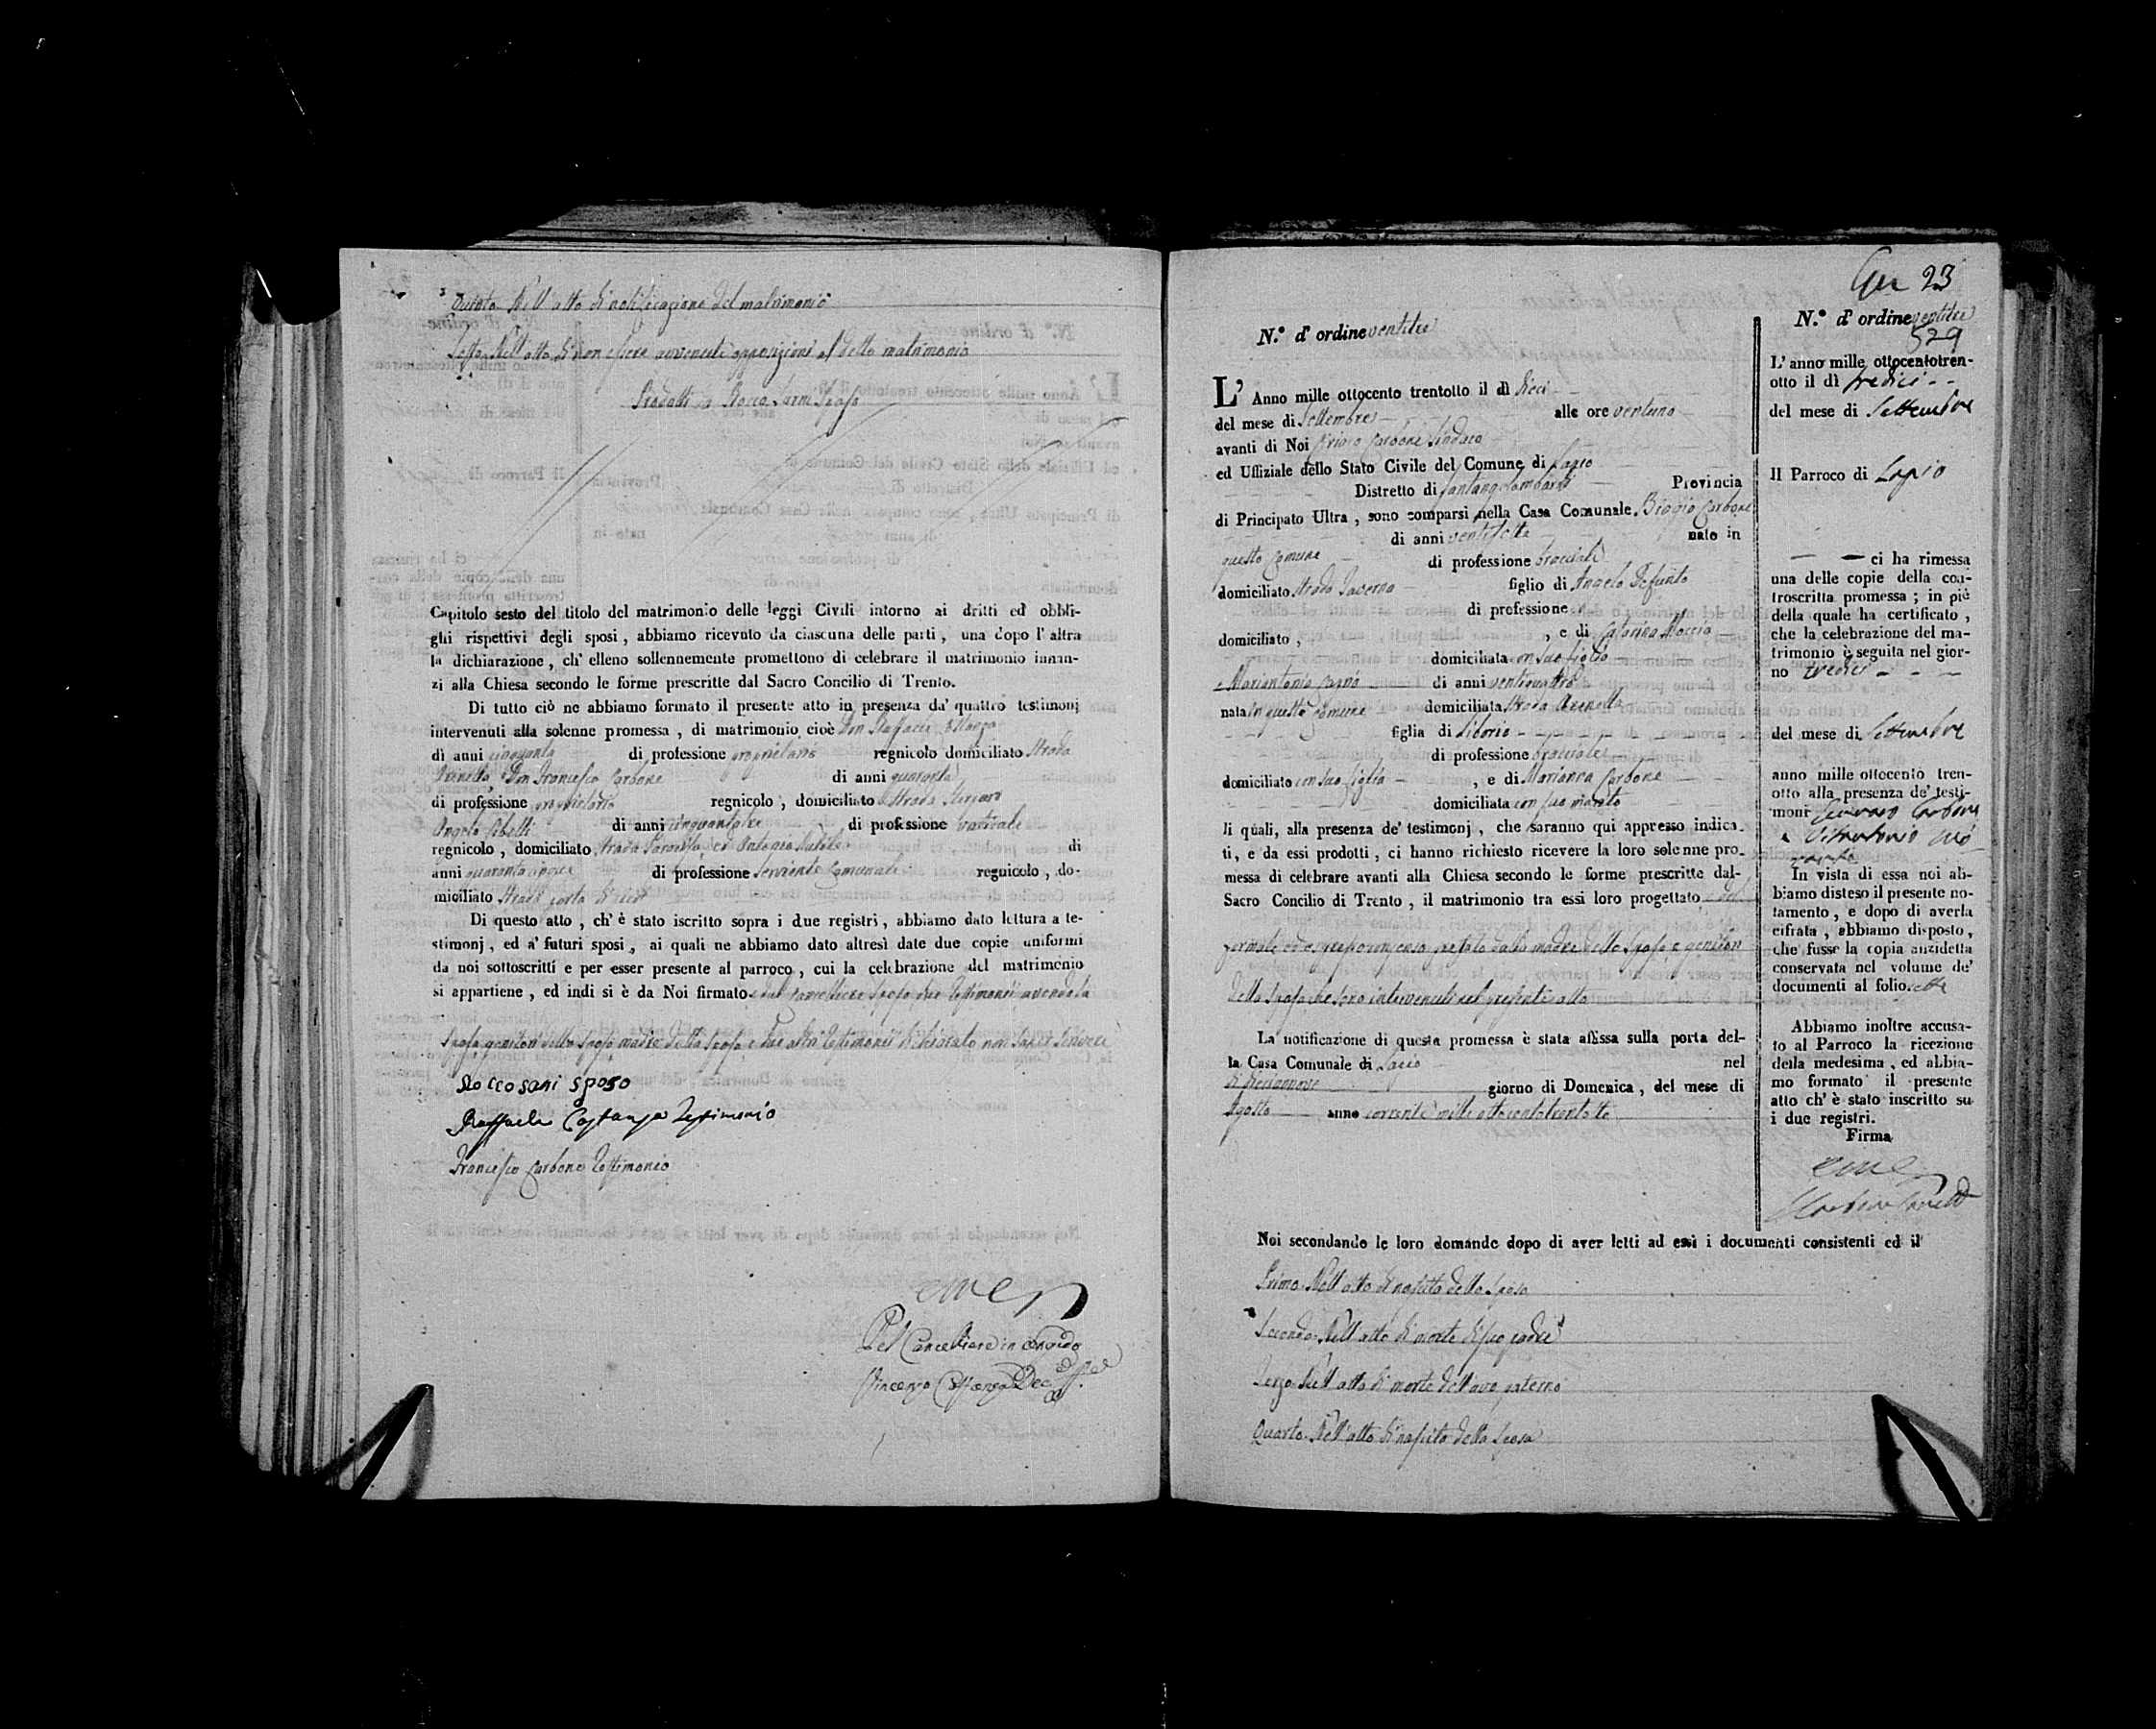 Quinto Nell'atto di notificazione del matrimonio
Sesto Nell'atto di non essere avvenute opposizioni al detto matrimonio
Prodotti Rocco Sposo
Capitolo sesto del titolo del matrimonio delle leggi Civili intorno ai dritti ed obbli-
ghi rispettivi degli sposi, abbiamo ricevuto da ciascuna delle parti, una dopo l'altra
la dichiarazione, ch'elleno sollennemente promettono di celebrare il matrimonio innan-
zi alla Chiesa secondo le forme prescritte dal Sacro Concilio di Trento.
Di tutto ciò ne abbiamo formato il presente atto in presenza da' quattro testimonj
intervenuti alla solenne promessa, di matrimonio cioè Don Raffaele
di anni cinquanta di professione proprietario regnicolo domiciliato Strada
Don Francesco Carbone di anni quaranta
di professione proprietario regnicolo, domiciliato Strada
Angelo di anni di professione
regnicolo, domiciliato Strada ed Antonio di
anni quaranta di professione Serviente Comunale regnicolo, do-
miciliato Strada porta
Di questo atto, ch'è stato iscritto sopra i due registri, abbiamo dato lettura a te-
stimonj, ed a' futuri sposi, ai quali ne abbiamo dato altresì date due copie uniformi
da noi sottoscritti e per esser presente al parroco, cui la celebrazione del matrimonio
si appartiene, ed indi si è da Noi firmato dal Cancelliere Sposo due testimonii avendo la
Sposa genitori dello Sposo madre della Sposa e due altri testimonii dichiarato non saper scrivere
Rocco sposo
Raffaele Costanza Testimonio
Francesco Carbone Testimonio
Pel Cancelliere in
Vincenzo
23
N.° d' ordine ventitre
L' Anno mille ottocento trentotto il dì dieci
del mese di Settembre alle ore ventuno
avanti di Noi Carbone Sindaco
ed Uffiziale dello Stato Civile del Comune di Lapio
Distretto di Santangelombardi Provincia
di Principato Ultra, sono comparsi nella Casa Comunale Biagio Carbone
di anni ventisette nato in
questo Comune di professione bracciale
domiciliato Strada Taverna figlio di Angelo Defunto
di professione
domiciliato, , e di Catarina
domiciliata con suo figlio
e Mariantonia di anni ventiquattro
nata in questo Comune domiciliata Strada
figlia di Liborio
di professione bracciale
domiciliato con sua figlia , e di Marianna Carbone
domiciliata con suo marito
li quali, alla presenza de' testimonj, che saranno qui appresso indica-
ti, e da essi prodotti, ci hanno richiesto ricevere la loro solenne pro-
messa di celebrare avanti alla Chiesa secondo le forme prescritte dal-
Sacro Concilio di Trento, il matrimonio tra essi loro progettato
formale ed espresso consenso prestato dalla madre dello Sposo e genitori
della Sposa che sono intervenuti nel presente atto
La notificazione di questa promessa è stata affissa sulla porta del-
la Casa Comunale di Lapio nel
dì diciannove giorno di Domenica, del mese di
Agosto anno corrente mille ottocentotrentotto
Noi secondando le loro domande dopo di aver letti ad essi i documenti consistenti ed il
Primo Nell'atto di nascita dello Sposo
Secondo Nell'atto di morte di suo padre
Terzo Nell'atto di morte dell'avo paterno
Quarto Nell'atto di nascita della Sposa
N.° d' ordine ventitre
529
L' anno mille ottocentotren-
otto il dì tredici
del mese di Settembre
Il Parroco di Lapio
ci ha rimessa
una delle copie della con-
troscritta promessa; in piè
della quale ha certificato,
che la celebrazione del ma-
trimonio è seguita nel gior-
no tredici
del mese di Settembre
anno mille ottocento tren-
otto alla presenza de' testi-
moni Carbone
e
In vista di essa noi ab-
biamo disteso il presente no-
tamento, e dopo di averla
cifrata, abbiamo disposto,
che fusse la copia anzidetta
conservata nel volume de'
documenti al folio
Abbiamo inoltre accusa-
to al Parroco la ricezione
della medesima, ed abbia-
mo formato il presente
atto ch'è stato inscritto su
i due registri.
Firma